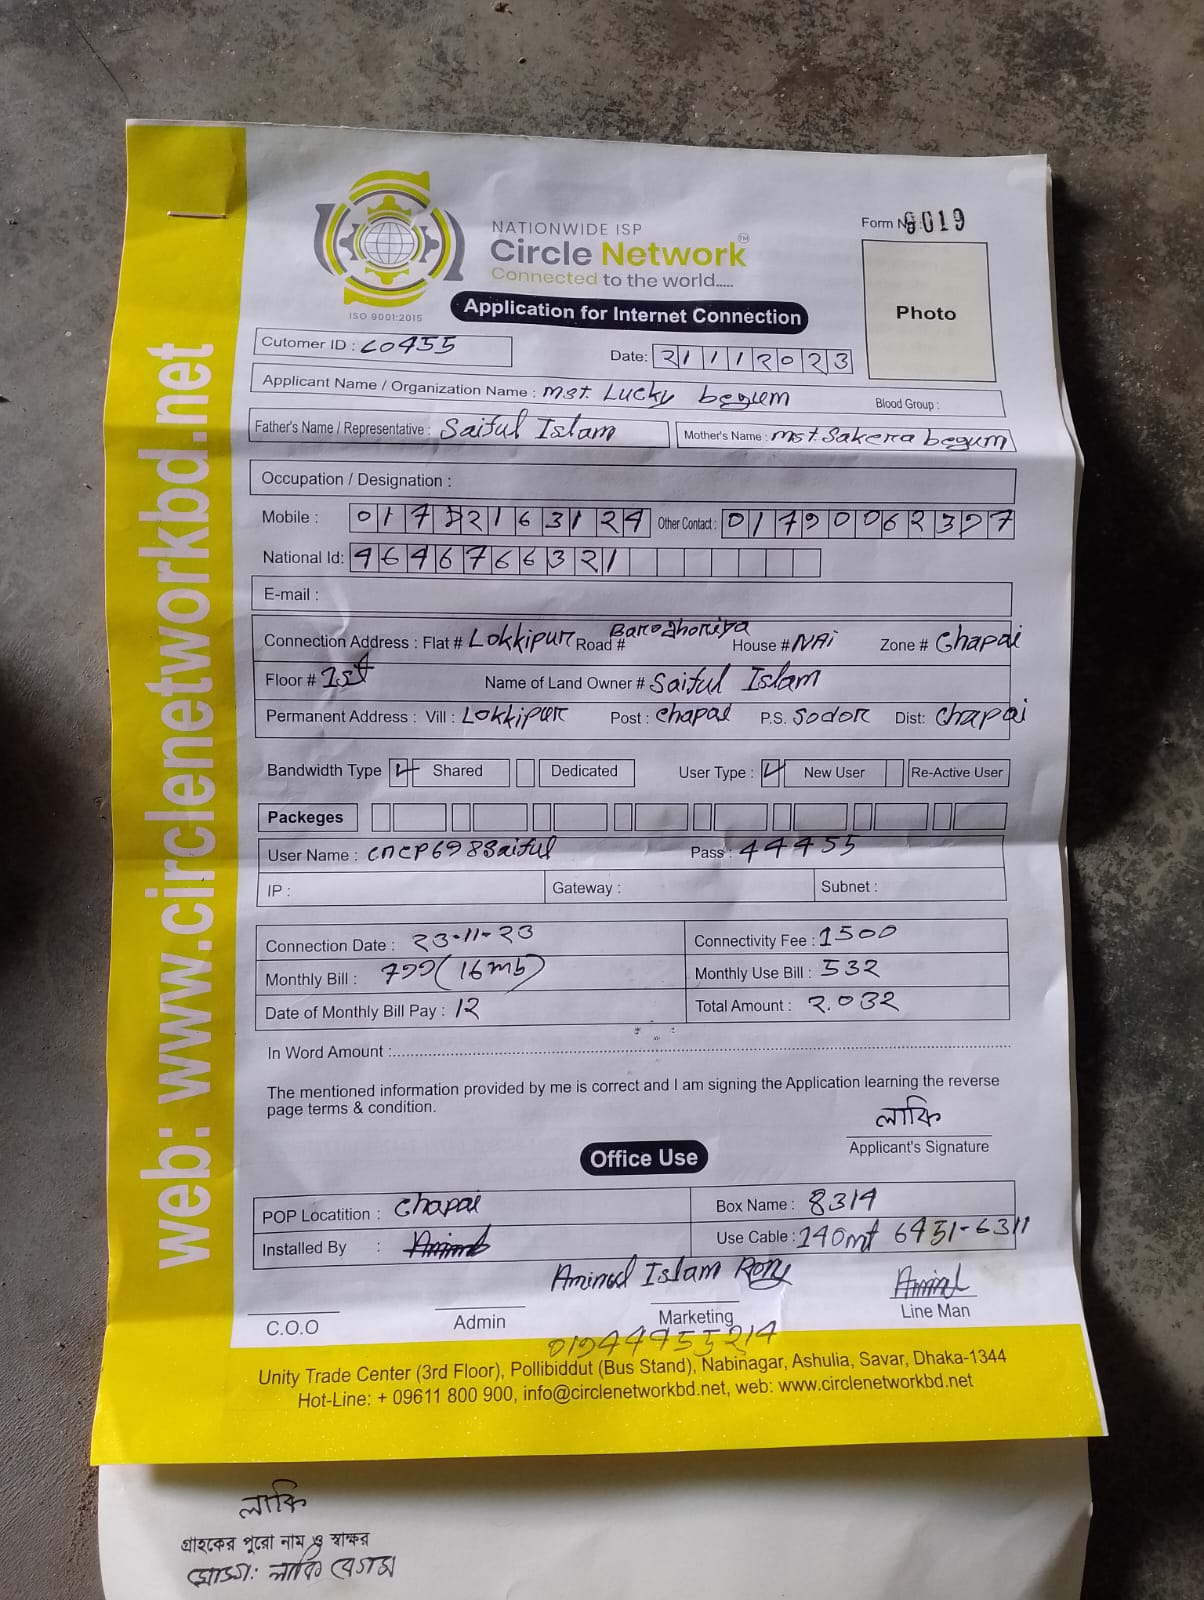 web: www.circlenetworkbd.net
NATIONWIDE ISP
Circle Network™
Connected to the world.....
ISO 9001:2015
Form No: 9019
Photo
Application for Internet Connection
Cutomer ID : C0455
Date: 21112023
Applicant Name / Organization Name : mst. Lucky begum
Blood Group :
Father's Name / Representative : Saiful Islam
Mother's Name : mst. Sakera begum
Occupation / Designation :
Mobile : 017 2163124 Other Contact :
National Id: 4646766321
E-mail :
Connection Address : Flat # Lokkipur Road # Baroghoriya House # NAi Zone # Chapai
Floor # 1st Name of Land Owner # Saiful Islam
Permanent Address : Vill : Lokkipur Post : Chapai P.S. Sodor Dist: Chapai
Bandwidth Type Shared Dedicated User Type : New User Re-Active User
Packeges
User Name : cncp698Saiful Pass : 44455
IP : Gateway : Subnet :
Connection Date : 23-11-23 Connectivity Fee : 1500
Monthly Bill : (16mb) Monthly Use Bill : 532
Date of Monthly Bill Pay : 12 Total Amount : 2.032
In Word Amount :
The mentioned information provided by me is correct and I am signing the Application learning the reverse
page terms & condition.
লাকি
Applicant's Signature
Office Use
POP Locatition : Chapai Box Name : 8314
Installed By : Use Cable : 140mt 6451-6311
Aminul Islam Rony
C.O.O Admin Marketing Line Man
Unity Trade Center (3rd Floor), Pollibiddut (Bus Stand), Nabinagar, Ashulia, Savar, Dhaka-1344
Hot-Line: + 09611 800 900, info@circlenetworkbd.net, web: www.circlenetworkbd.net
লাকি
গ্রাহকের পুরো নাম ও স্বাক্ষর
মোসাঃ লাকি বেগম